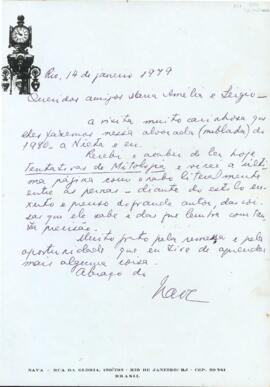 Rio, 14 de janeiro 1979
Queridos amigos Maria Amélia e Sérgio -
A visita muito carinhosa que
lhes fazemos nessa alvorada (nublada) de
1980 - a Nieta e eu.
Recebi e acabei de ler hoje
Tentativas de Mitologia e virei a últi-
ma página com o rabo literalmente
entre as pernas - diante do estilo en-
xuto e preciso do grande autor, das coi-
sas que ele sabe e das que lembra com tan-
ta precisão.
Muito grato pela remessa e pela
oportunidade que eu tive de aprender
mais alguma coisa.
Abraço do
Nava
NAVA - RUA DA GLORIA, - RIO DE JANEIRO/RJ - CEP.
BRASIL